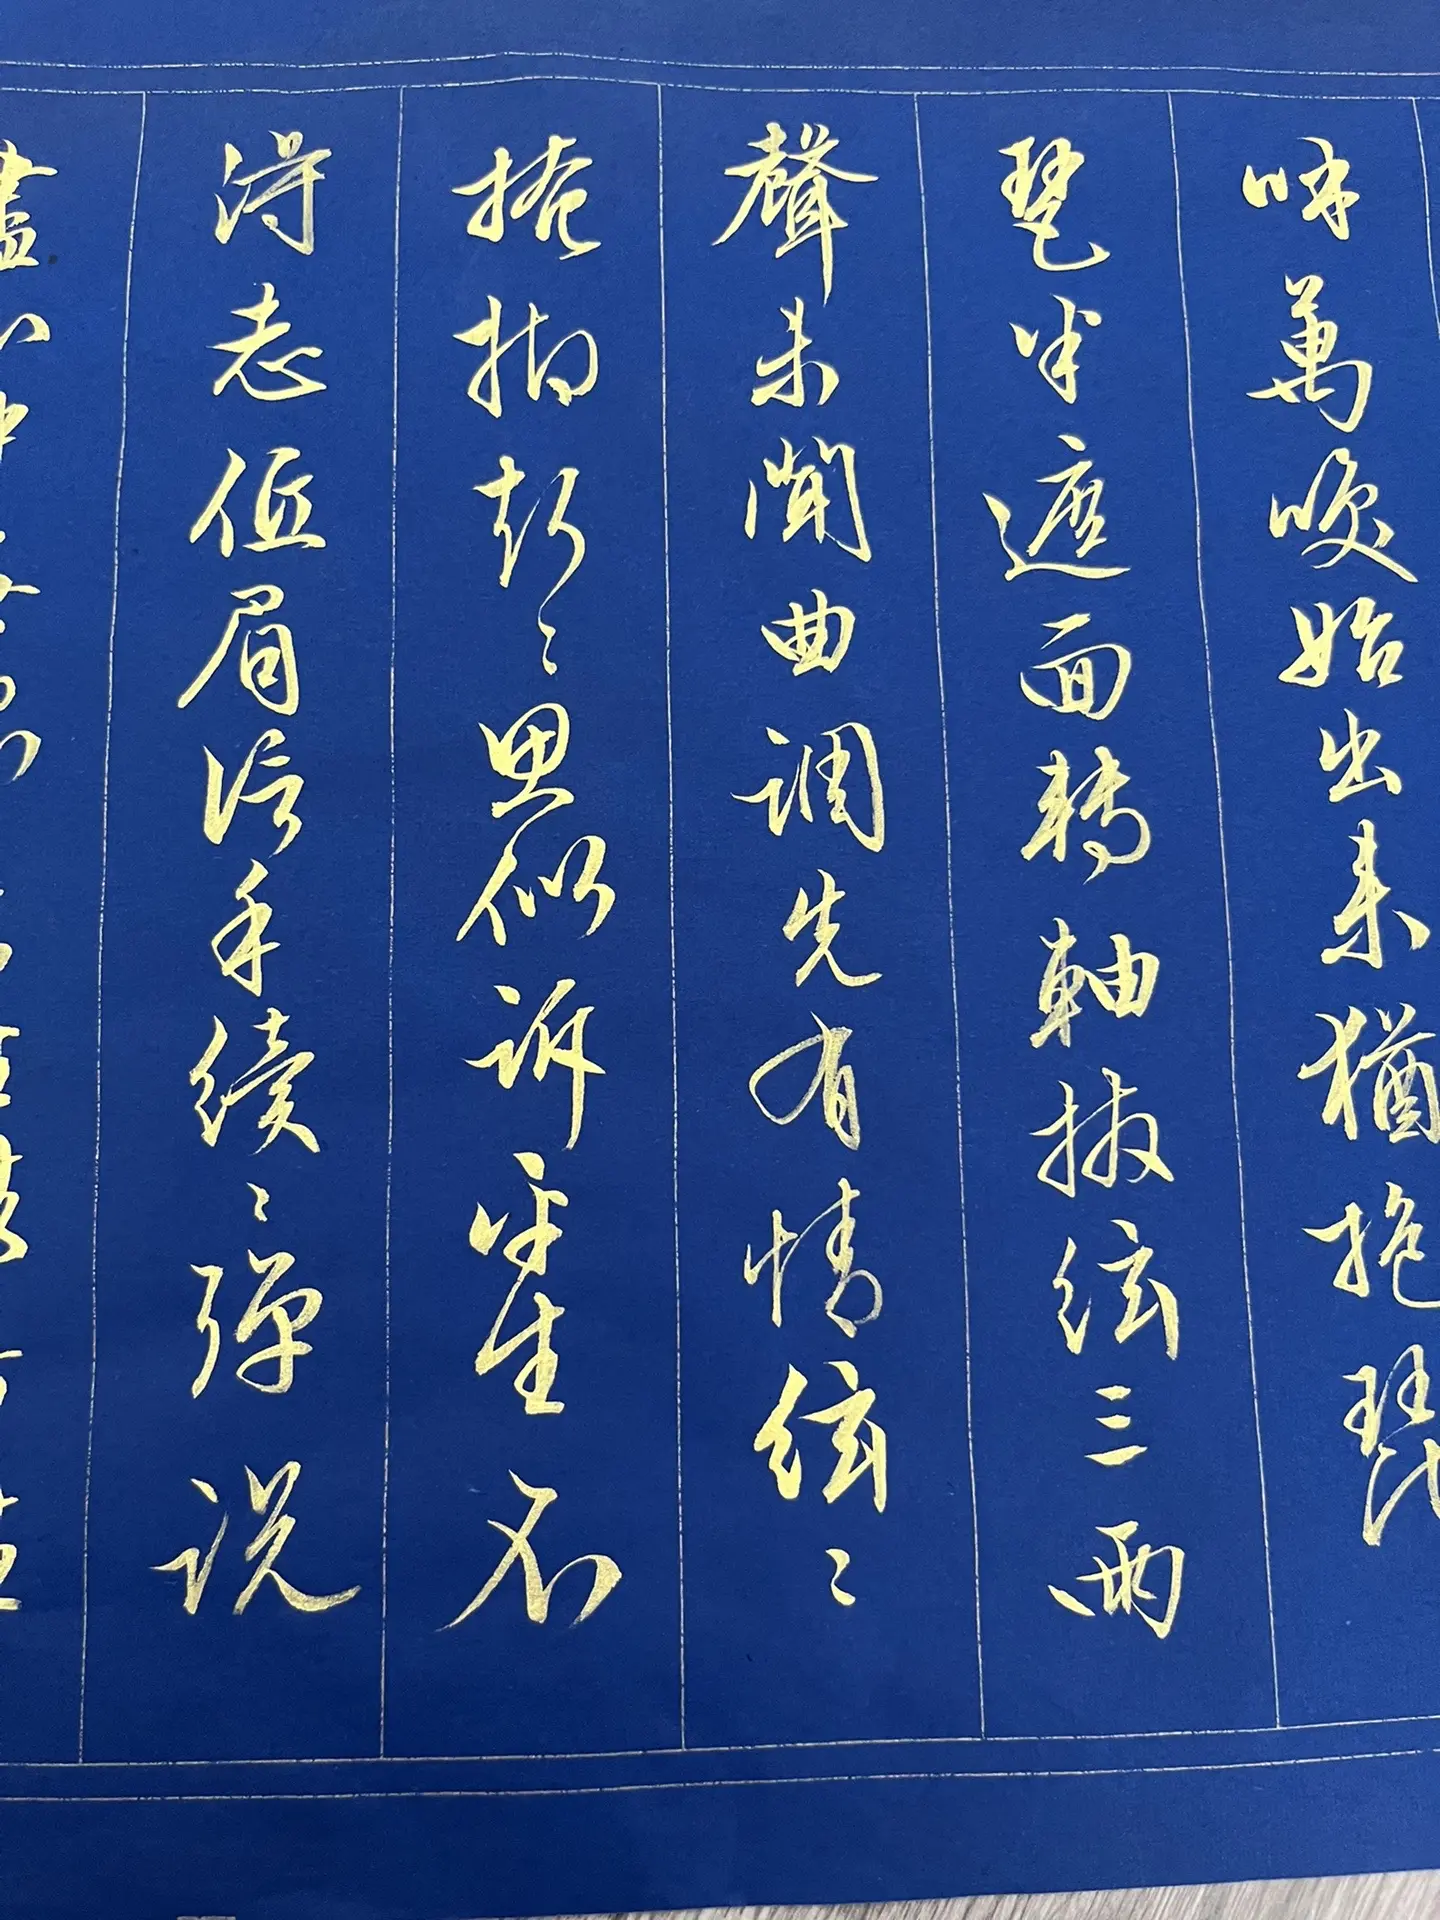 呼萬喚始出來猶抱琵
琶半遮面轉軸撥絃三兩
聲未聞曲調先有情絃〻
掩抑聲〻思似訴平生不
得志低眉信手續〻彈説
盡心中